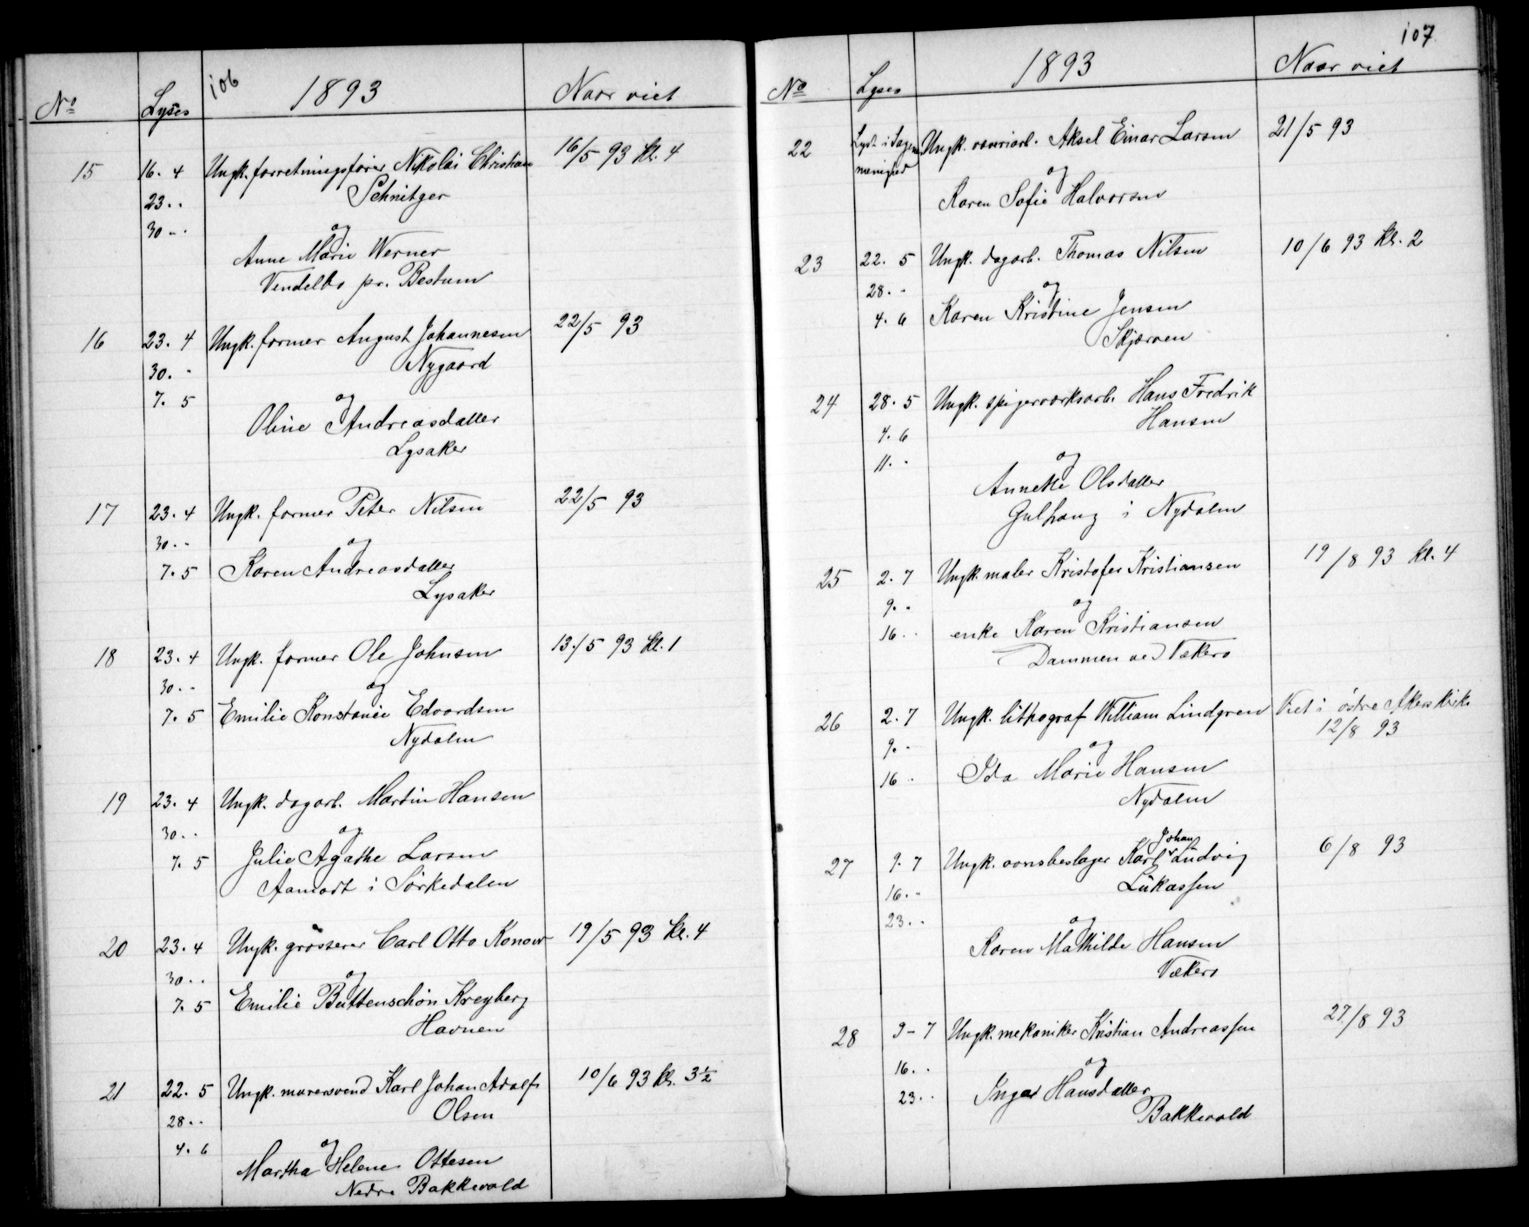 106
No Lyses 1893 Naar viet
15 16. 4 Ungk. forretningsfører Nikolai Christian 16/5 93 kl. 4
23. . Schnitger
30 . . og
Anne Marie Werner
Vendelbo pr. Bestum
16 23. 4 Ungk. former August Johannesen 22/5 93
30. . Nygaard
7. 5 og
Oline Andreasdatter
Lysaker
17 23. 4 Ungk. former Peter Nilsen 22/5 93
30. . og
7. 5 Karen Andreasdatter
Lysaker
18 23. 4 Ungk. former Ole Johnsen 13/5 93 kl. 1
30. . og
7. 5 Emilie Konstance Edvardsen
Nydalen
19 23. 4 Ungk. dagarb. Martin Hansen
30. . og
7. 5 Julie Agathe Larsen
Aamodt i Sørkedalen
20 23. 4 Ungk. grosserer Carl Otto Konow 19/5 93 kl. 4
30. . og
7. 5 Emilie Buttenschøn Kreyberg
Havnen
21 22. 5 Ungk. murersvend Karl Johan Adolf 10/6 93 kl. 3½
28. . Olsen
4. 6 og
Martha Helene Ottesen
Nedre Bakkevold
107
No Lyses 1893 Naar viet
22 Lyst i Sagene Ungk. Aksel Einar Larsen 21/5 93
menighed og
Karen Sofie Halvorsen
23 22. 5 Ungk. dagarb. Thomas Nilsen 10/6 93 kl. 2
28. . og
4. 6 Karen Kristine Jensen
Skjærven
24 28. 5 Ungk. spigerverksarb. Hans Fredrik
4. 6 Hansen
11. . og
Annette Olsdatter
Gulhaug i Nydalen
25 2. 7 Ungk. maler Kristofer Kristiansen 19/8 93 kl. 4
9. . og
16. . enke Karen Kristiansen
Dammen ved Vækerø
26 2. 7 Ungk. lithograf William Lindgren Viet i østre Akers kirke
9. . og 12/8 93
16 . Ida Marie Hansen
Nydalen
27 9. 7 Ungk. ovnsbeslager Karl Johan Ludvig 6/8 93
16. . Lükassen
23. . og
Karen Mathilde Hansen
Vækerø
28 9 - 7 Ungk. mekaniker Kristian Andreassen 27/8 93
16. . og
23. . Inger Hansdatter
Bakkevold